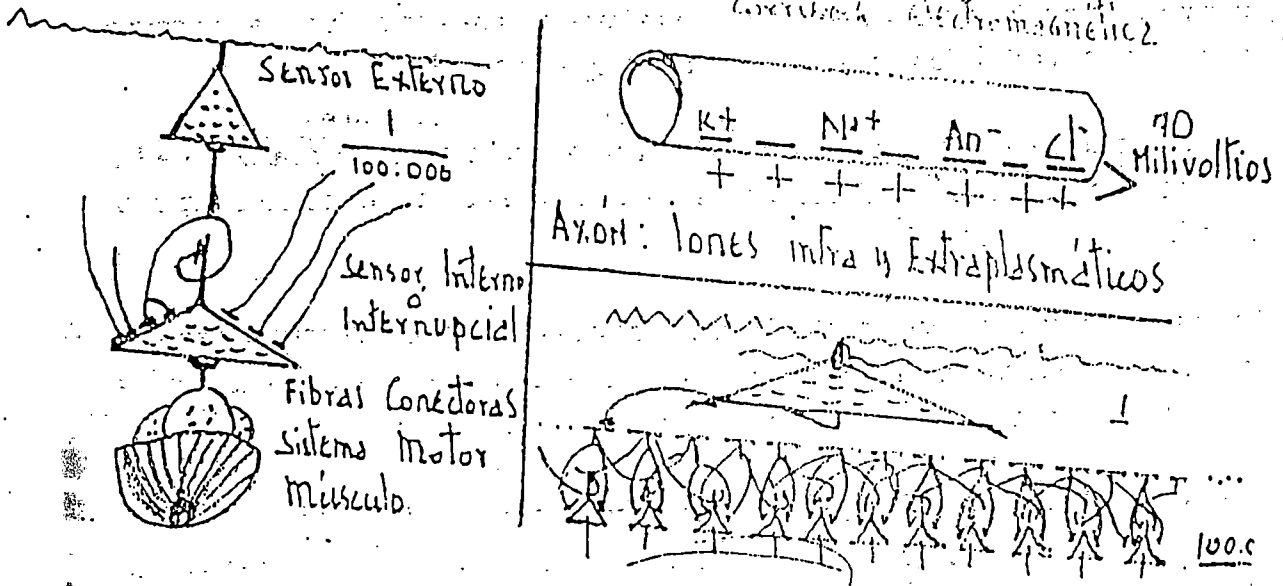 Sensor Externo
1
100.000
Sensor Interno
o
Internupcial
Fibras Conectoras
Sistema Motor
Músculo.
electromagnética
K+ __ Na+ __ An- _ Cl-
+ + + + + + +
70
Milivoltios
Axón: Iones infra y Extraplasmáticos
1